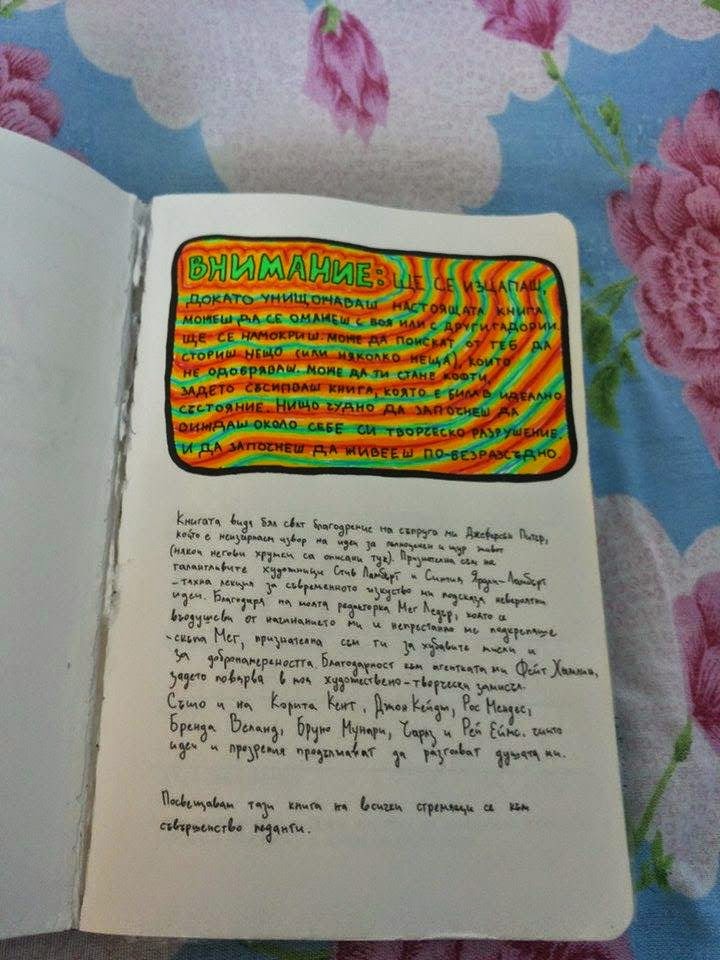 ВНИМАНИЕ: ЩЕ СЕ ИЗЦАПАШ,
ДОКАТО УНИЩОЖАВАШ НАСТОЯЩАТА КНИГА.
МОЖЕШ ДА СЕ ОМАЖЕШ С БОЯ ИЛИ С ДРУГИ ГАДОРИИ.
ЩЕ СЕ НАМОКРИШ. МОЖЕ ДА ПОИСКАТ ОТ ТЕБ ДА
СТОРИШ НЕЩО (ИЛИ НЯКОЛКО НЕЩА), КОИТО
НЕ ОДОБРЯВАШ. МОЖЕ ДА ТИ СТАНЕ КОФТИ,
ЗАДЕТО СЪСИПВАШ КНИГА, КОЯТО Е БИЛА В ИДЕАЛНО
СЪСТОЯНИЕ. НИЩО ЧУДНО ДА ЗАПОЧНЕШ ДА
ВИЖДАШ ОКОЛО СЕБЕ СИ ТВОРЧЕСКО РАЗРУШЕНИЕ.
И ДА ЗАПОЧНЕШ ДА ЖИВЕЕШ ПО-БЕЗРАЗСЪДНО.
Книгата видя бял свят благодрение на съпруга ми Джеферсън Питър,
който е неизчерпаем извор на идеи за пълноценен и щур живот
(някои негови хрумки са описани тук). Признателна съм на
талантливите художници Стив Ламбърт и Синтия Ярди-Ламбърт
– тяхна лекция за съвременното изкуство ми подсказа невероятни
идеи. Благодаря на моята редакторка Мег Ледър, която се
въодушеви от начинанието ми и непрестанно ме подкрепяше
– скъпа Мег, признателна съм ти за хубавите мисли и
за добронамереността. Благодарност към агентката ми Фейт Хамлин,
задето повярва в моя художествено-творчески замисъл.
Също и на Корита Кент, Джон Кейдж, Рос Мендес,
Бренда Веланд, Бруно Мунари, Чарлз и Рей Еймс, чиито
идеи и прозрения продължават да разпалват душата ми.
Посвещавам тази книга на всички стремящи се към
съвършенство педанти.